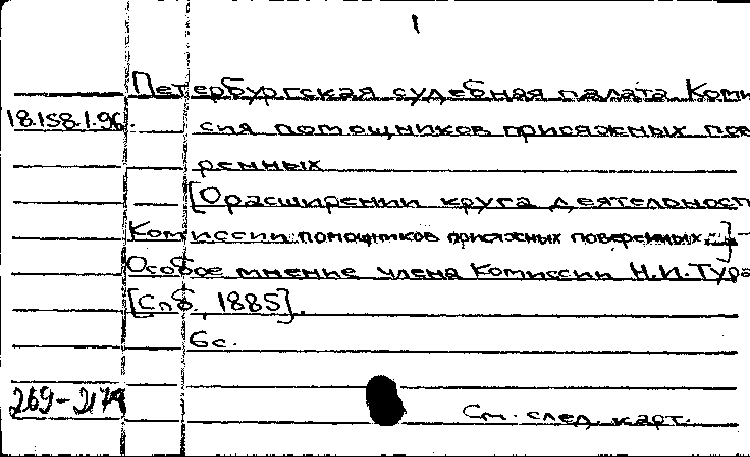 1
Петербургская судебная палата. Коми
18.158.1.96. сия помощников присяжных пов
ренных
[О расширении круга деятельност
Комиссии помощников присяжных поверенных...]
Особое мнение члена Комиссии Н.И. Тура
[Спб, 1885].
6с.
269-
См. след. карт.